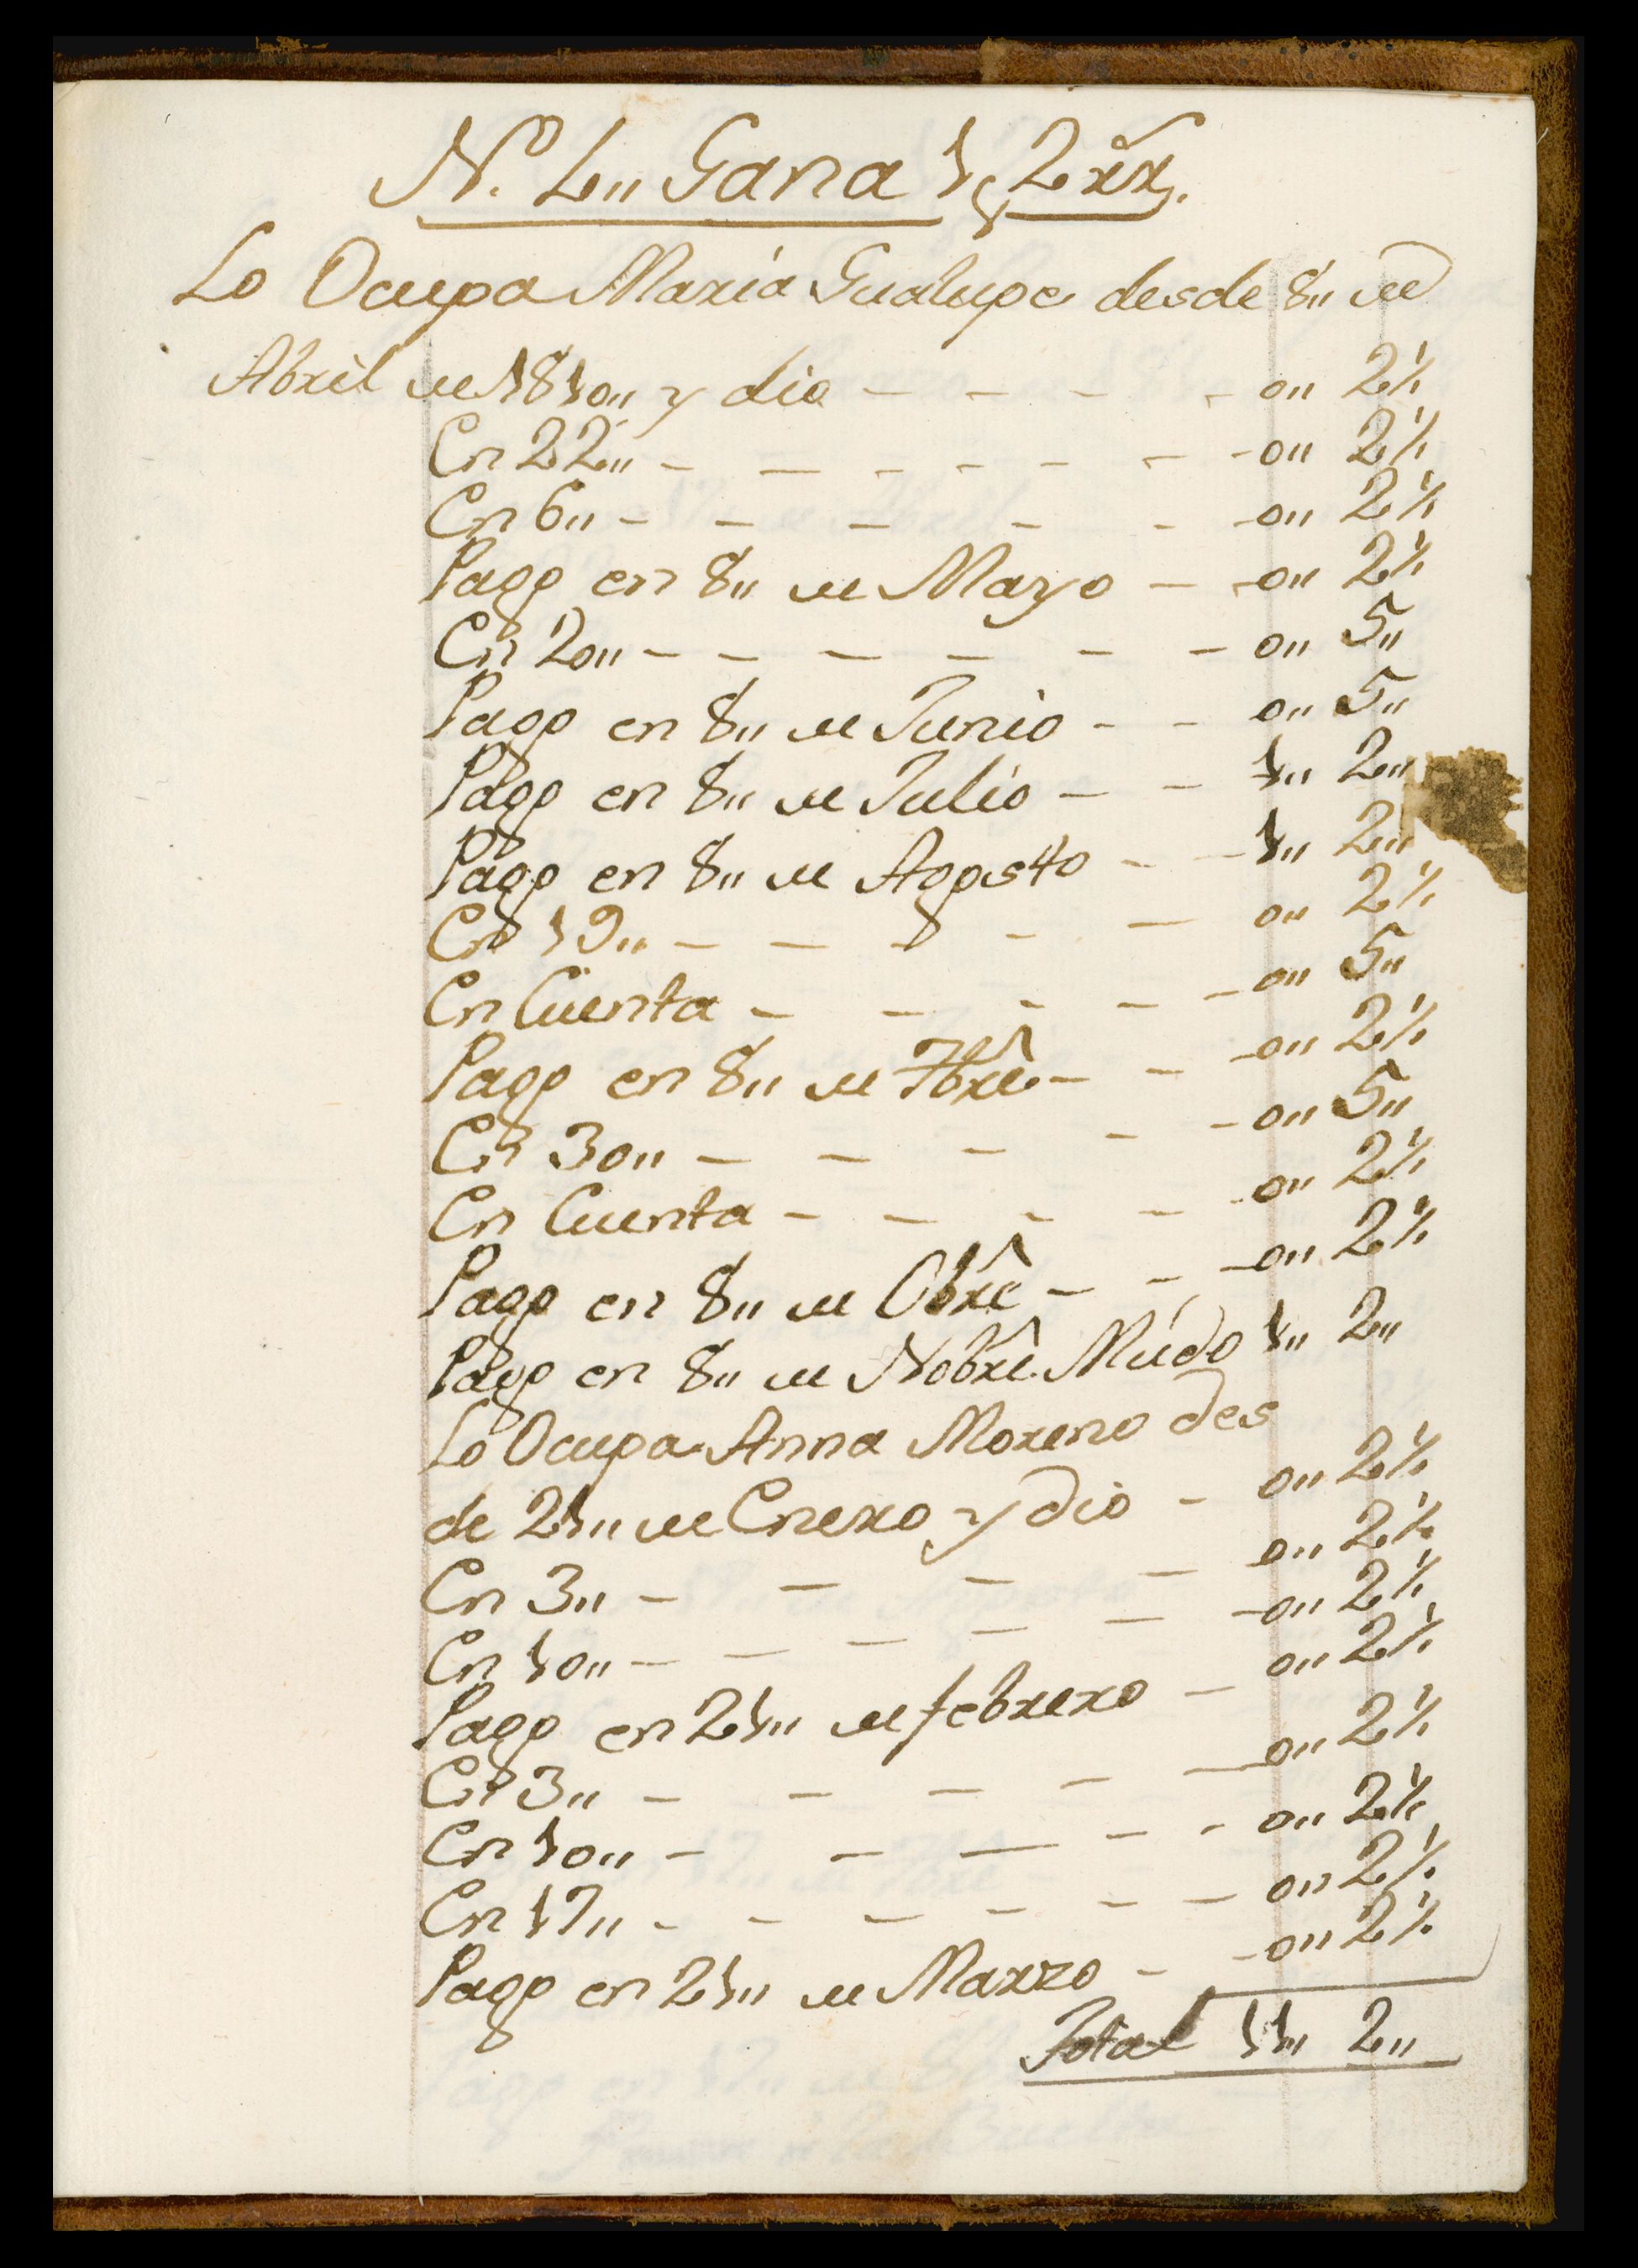 Nº. L,, Gana 1, 2 rrs.
Lo Ocupa Maria Gualupe desde 8,, de
Abril de 1810,, y dio - - - - 0,, 2½
En 22,, - - - - - - - 0,, 2½
En 6,, - - - - - - 0,, 2½
Pago en 8,, de Mayo - - 0,, 2½
En 20,, - - - - - - 0,, 5,,
Pago en 8,, de Junio - - 0,, 5,,
Pago en 8,, de Julio - - 1,, 2,,
Pago en 8,, de Agosto - - 1,, 2,,
En 19,, - - - - - 0,, 2½
En Cuenta - - - - - 0,, 5,,
Pago en 8,, de 7bre - - - 0,, 2½
En 30,, - - - - - 0,, 5,,
En Cuenta - - - - 0,, 2½
Pago en 8,, de Obre - - - 0,, 2½
Pago en 8,, de Nobre. Mudo 1,, 2,,
Lo Ocupa Anna Moreno des
de 21,, de Enero y dio - 0,, 2½
En 3,, - - - - 0,, 2½
En 10,, - - - - - - 0,, 2½
Pago en 21,, de febrero - 0,, 2½
En 3,, - - - - - 0,, 2½
En 10,, - - - - - 0,, 2½
En 17,, - - - - - - 0,, 2½
Pago en 21,, de Marzo - - 0,, 2½
Total 11,, 2,,